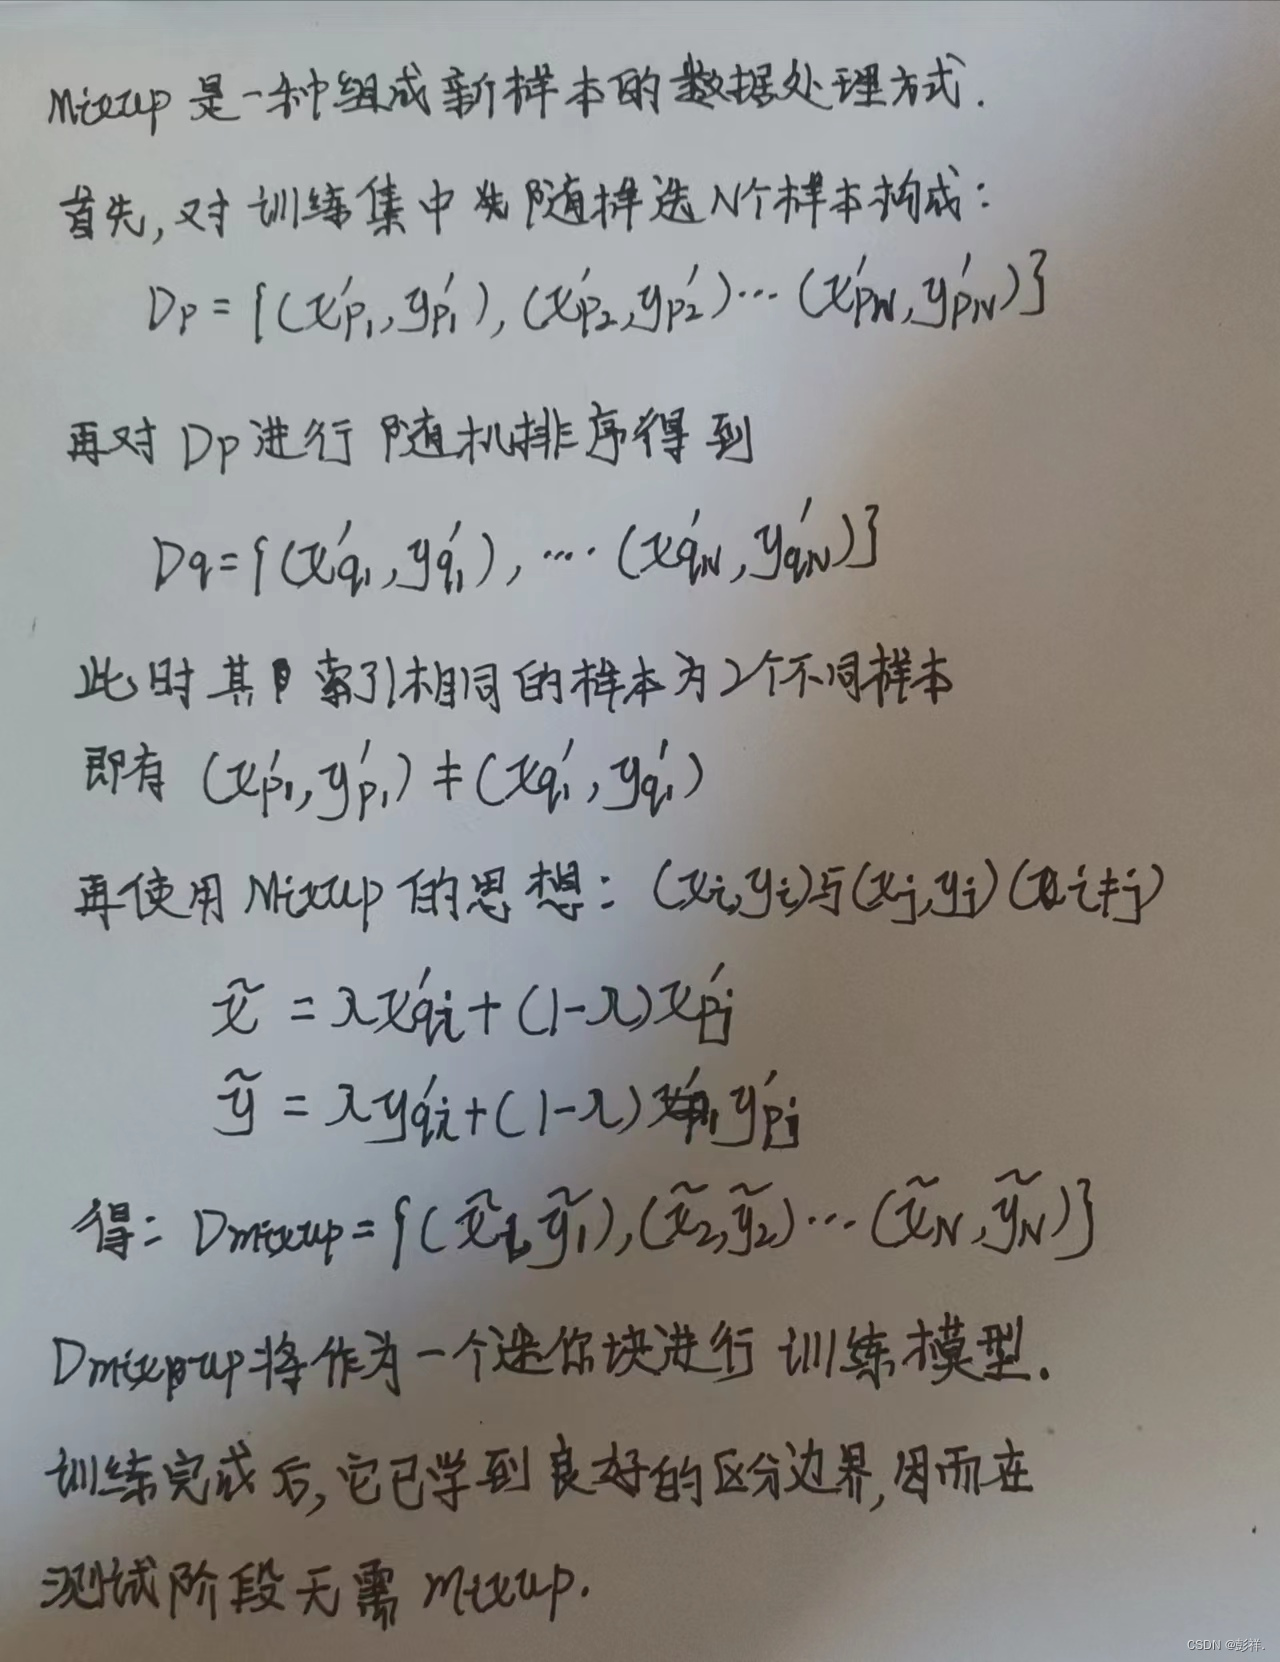 Mixup 是一种组成新样本的数据处理方式.
首先,对训练集中先随样选N个样本构成:
Dp = {(x'p1, y'p1), (x'p2, y'p2)··· (x'pN, y'pN)}
再对 Dp 进行随机排序得到
Dq = {(x'q1, y'q1), ···· (x'qN, y'qN)}
此时其索引相同的样本为2个不同样本
即有 (x'p1, y'p1) ≠ (x'q1, y'q1)
再使用 Mixup 的思想: (xi, yi)与(xj, yj) (i≠j)
x̃ = λx'qi + (1-λ)x'pj
ỹ = λy'qi + (1-λ) y'pj
得: Dmixup = {(x̃1, ỹ1), (x̃2, ỹ2)··· (x̃N, ỹN)}
Dmixup将作为一个迷你块进行训练模型.
训练完成后,它已学到良好的区分边界,因而在
测试阶段无需 mixup.
CSDN @彭祥.